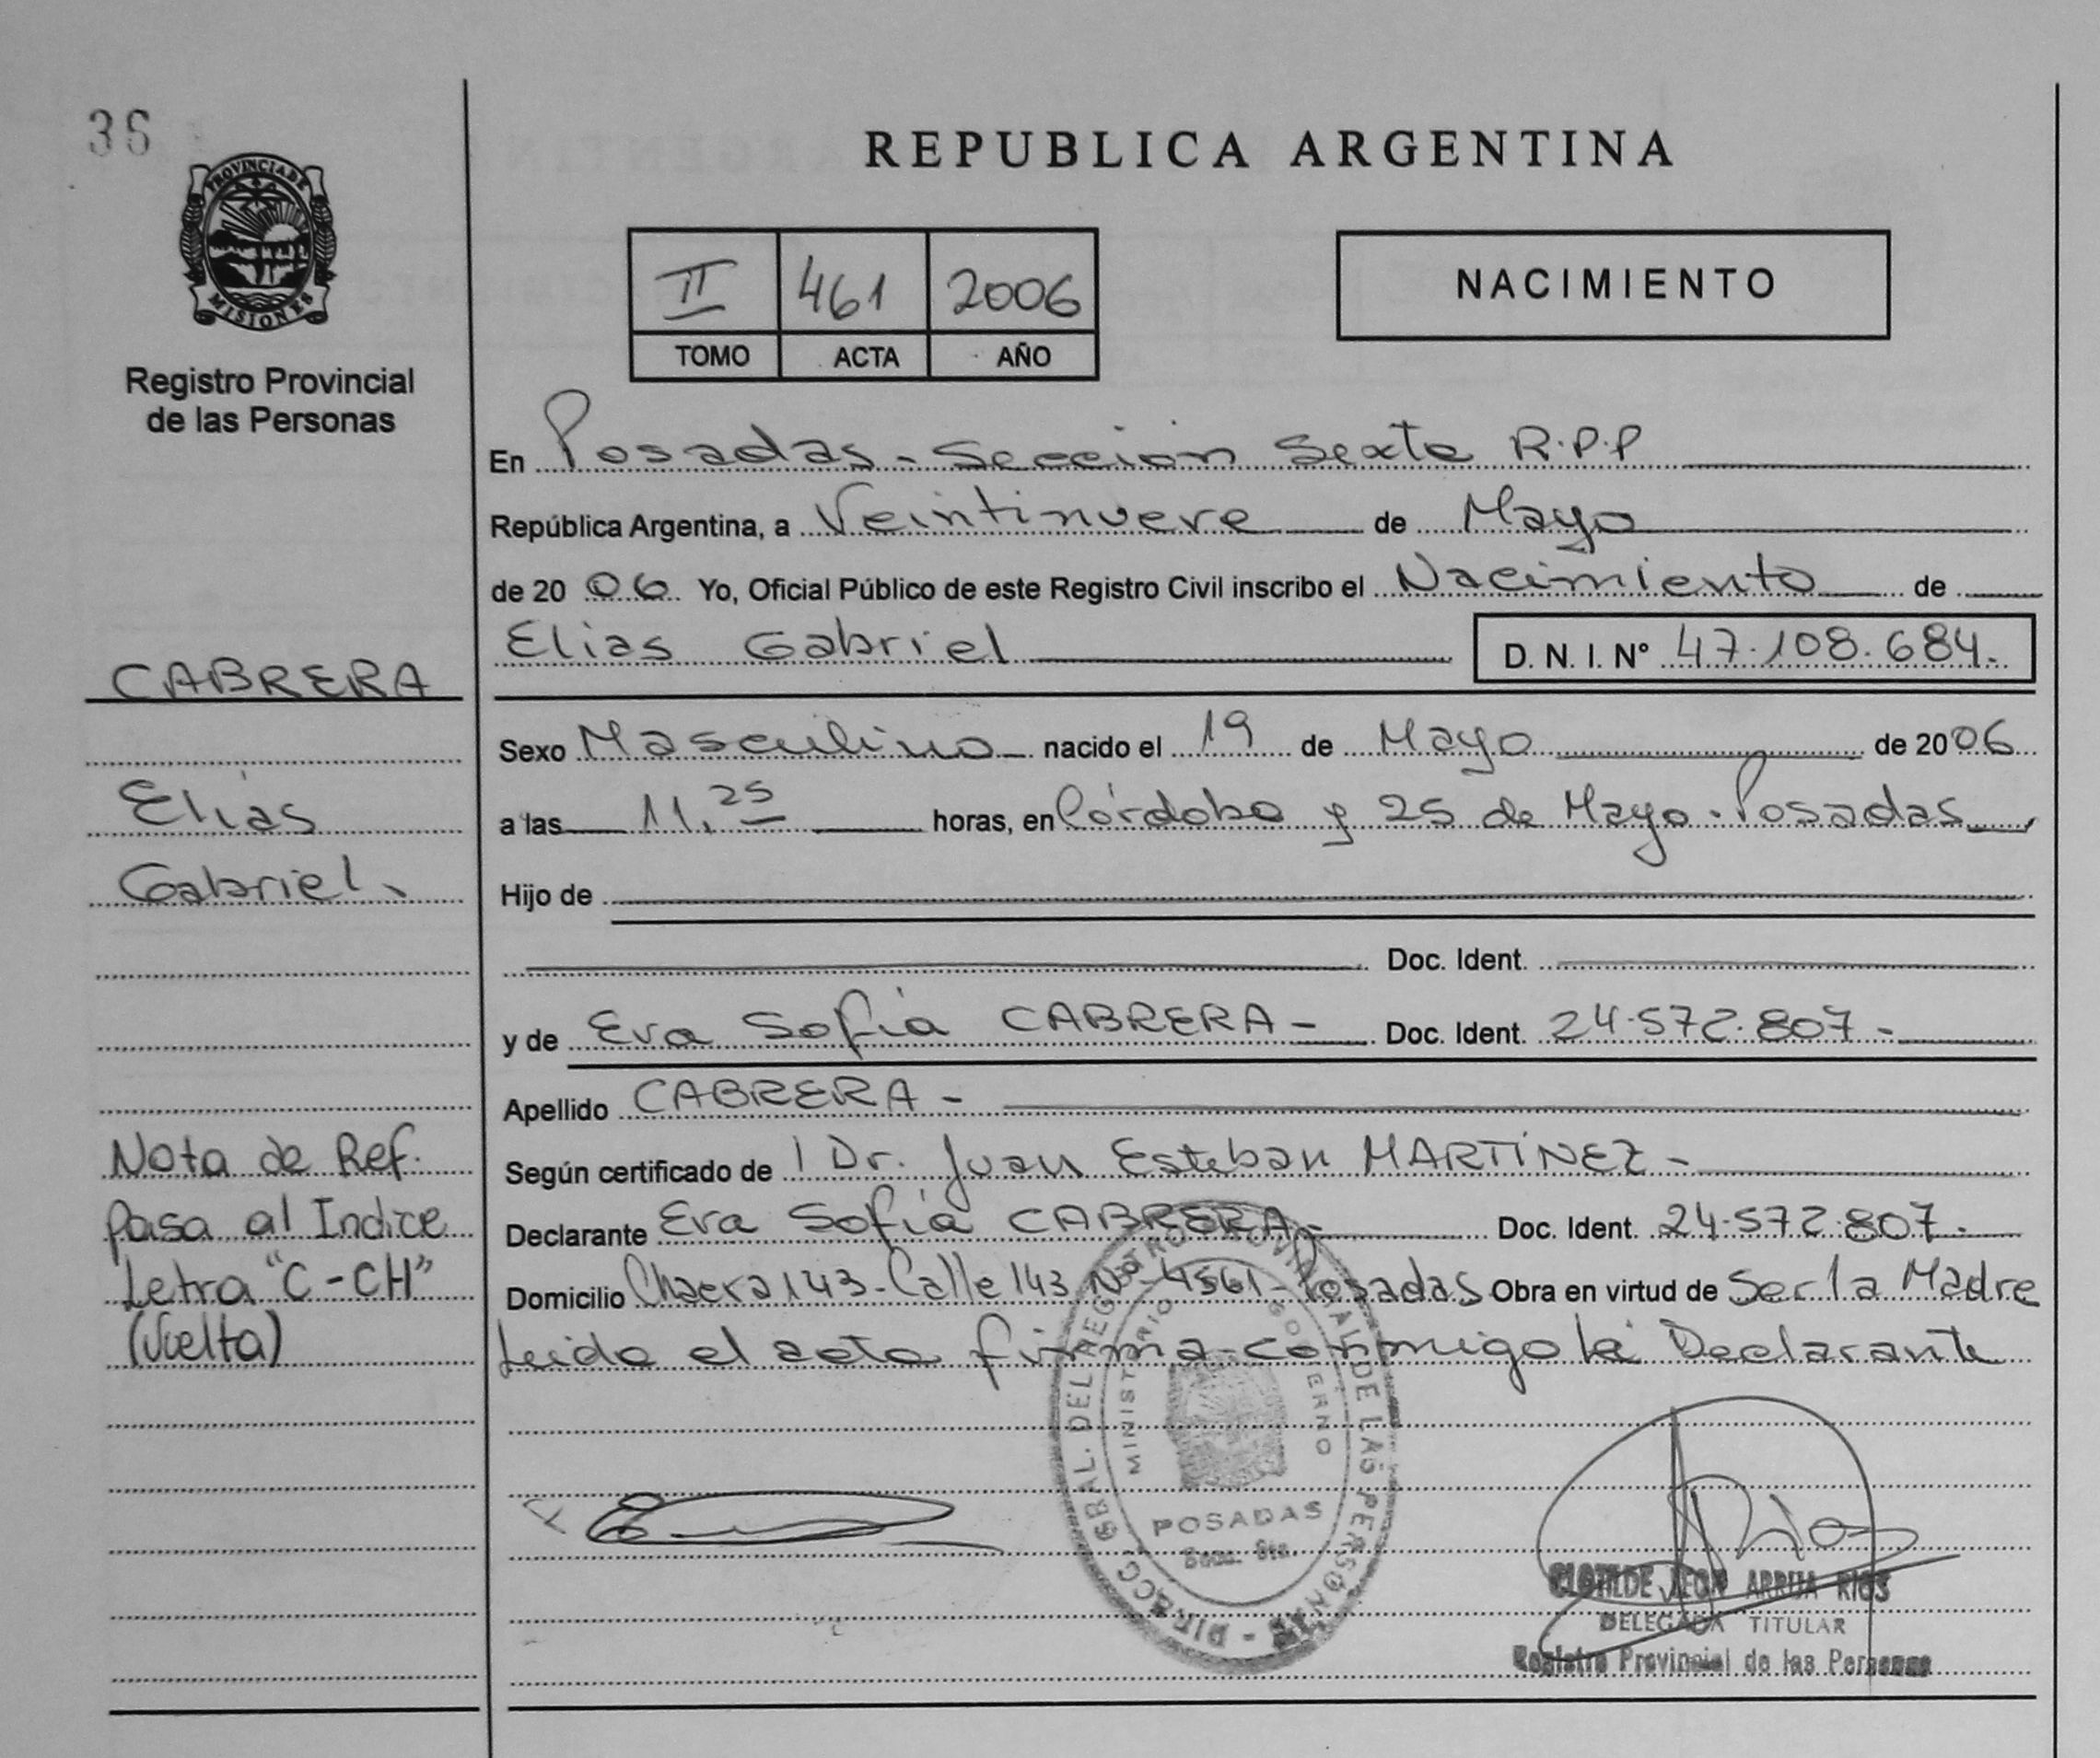 36
REPUBLICA ARGENTINA
PROVINCIA DE
MISIONES
Registro Provincial
de las Personas
II 461 2006
TOMO ACTA AÑO
NACIMIENTO
En Posadas - Sección Sexta R.P.P
República Argentina, a Veintinueve de Mayo
de 2006 Yo, Oficial Público de este Registro Civil inscribo el Nacimiento de
Elias Gabriel D. N. I. Nº 47.108.684.-
CABRERA
Sexo Masculino nacido el 19 de Mayo de 2006
a las 11,25 horas, en Córdoba y 25 de Mayo - Posadas
Elias
Gabriel.
Hijo de
Doc. Ident.
y de Eva Sofía CABRERA - Doc. Ident. 24.572.807.-
Apellido CABRERA -
Según certificado de l Dr. Juan Esteban MARTÍNEZ -
Declarante Eva Sofía CABRERA - Doc. Ident. 24.572.807.-
Domicilio Chacra 143 - Calle 143 Nº 4561 - Posadas Obra en virtud de Ser la Madre
Leida el acta firma conmigo la Declarante
Nota de Ref.
Pasa al Indice
Letra "C - CH"
(Vuelta)
DIRECC. GRAL. DEL REGISTRO PROVINCIAL DE LAS PERSONAS
MINISTERIO GOBIERNO
POSADAS
Secc. 6ta.
CLOTILDE ARRUA RIOS
DELEGADA TITULAR
Registro Provincial de las Personas